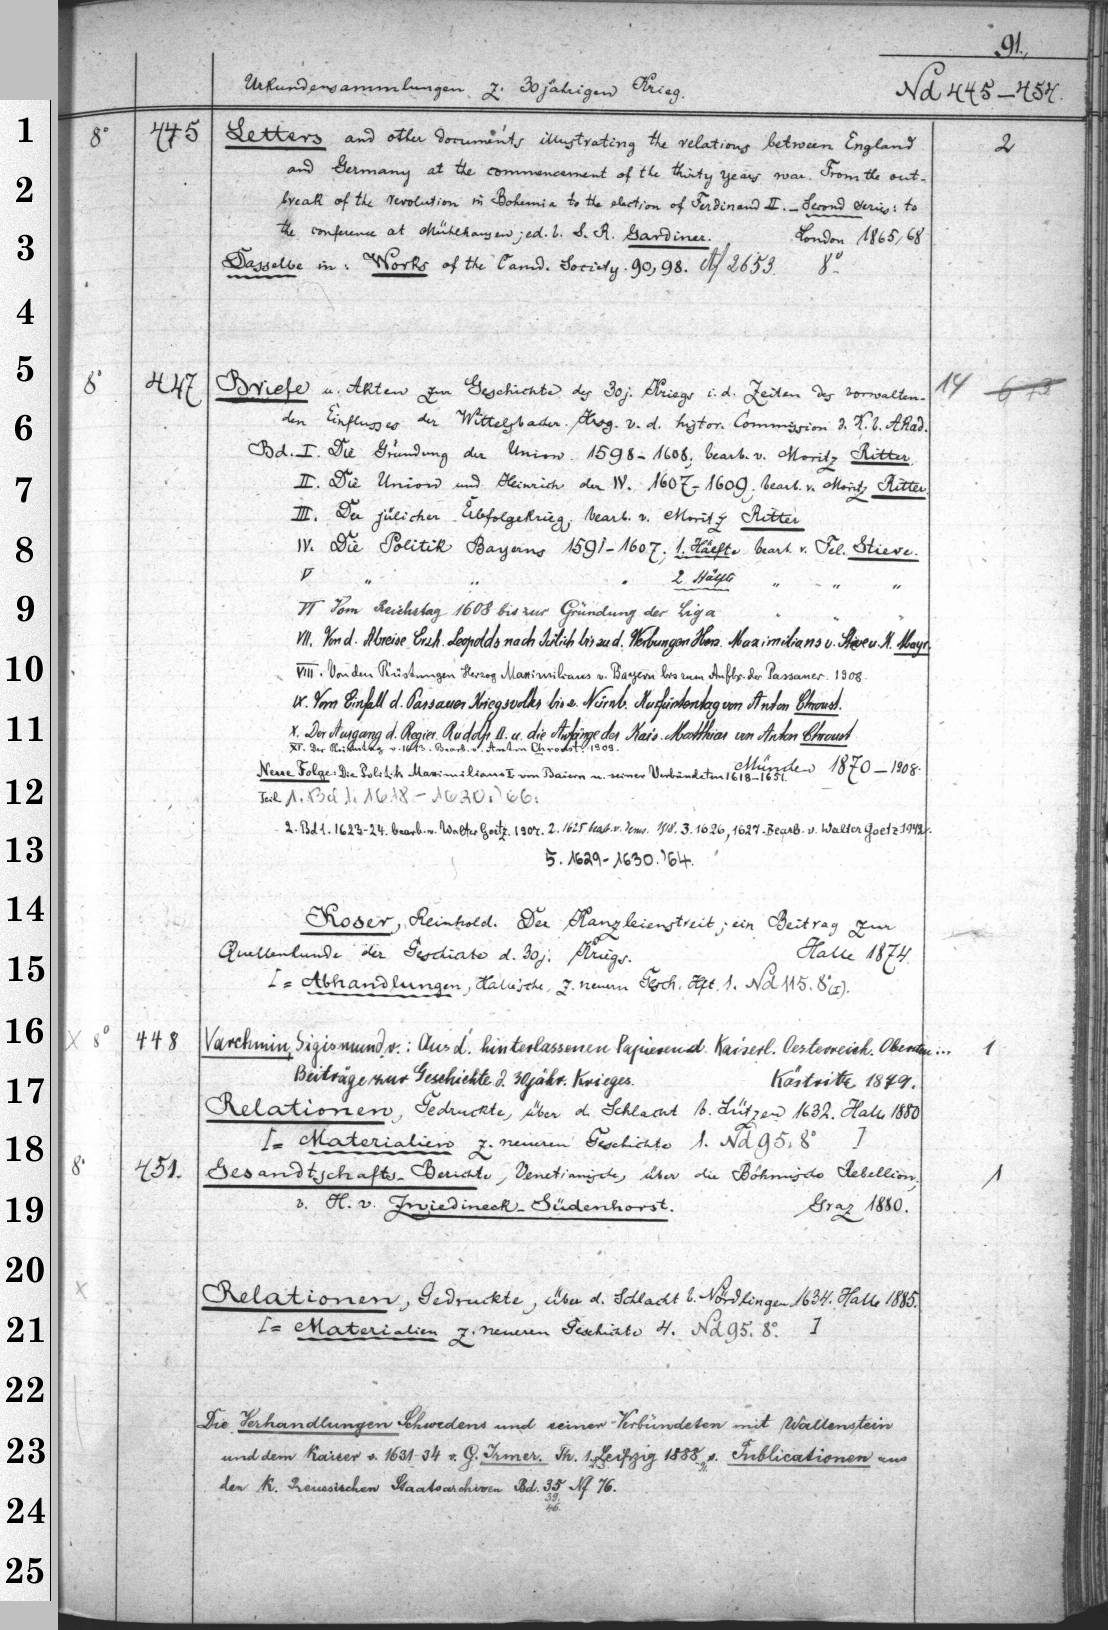 91.
Urkundensammlungen z. 30jährigen Krieg.
Nd 445-457.
1
8° 445 Letters and other documents illustrating the relations between England 2
2
and Germany at the commencement of the thirty years war. From the out-
break of the revolution in Bohemia to the election of Ferdinand II. - Second series: to
3
the conference at Mühlhausen; ed. b. S. R. Gardiner. London 1865, 68
Dasselbe in: Works of the Camd. Society. 90, 98. 2653. 8°
4
5
8° 447 Briefe u. Akten zur Geschichte des 30j. Kriegs i. d. Zeiten des vorwalten- 14
6
den Einflusses der Wittelsbacher. Hrsg. v. d. histor. Commission d. K. b. Akad.
Bd. I. Die Gründung der Union 1598-1608, bearb. v. Moritz Ritter.
7
II. Die Union und Heinrich der IV. 1607-1609, bearb. v. Moritz Ritter.
III. Der jülicher Erbfolgekrieg, bearb. v. Moritz Ritter
8
IV. Die Politik Bayerns 1591-1607, 1. Hälfte bearb. v. Fel. Stieve.
V " " " 2. Hälfte " " "
9
VI Vom Reichstag 1608 bis zur Gründung der Liga " " "
VII. Von d. Abreise Erzh. Leopolds nach Jülich bis zu d. Werbungen Herz. Maximilians v. Stieve u. K. Mayr.
10
VIII. Von den Rüstungen Herzog Maximilians v. Bayern bis zum Aufbr. der Passauer. 1908.
IX. Vom Einfall d. Passauer Kriegsvolks bis z. Nürnb. Kurfürstentag von Anton Chroust.
11
X. Der Ausgang d. Regier. Rudolfs II. u. die Anfänge des Kais. Matthias von Anton Chroust
XI. Der Reichstag v. 1613. Bearb. v. Anton Chroust. 1909.
München 1870-1908.
Neue Folge: Die Politik Maximilians I. von Baiern u. seiner Verbündeten 1618-1651.
12
Teil 1. Bd 1. 1618-1620. '66.
2. Bd 1. 1623-24. bearb. v. Walter Goetz. 1907. 2. 1625 bearb. v. dems. 1918. 3. 1626, 1627. Bearb. v. Walter Goetz 1942.
13
5. 1629-1630. '64.
14
Koser, Reinhold. Der Kanzleienstreit; ein Beitrag zur
Quellenkunde der Geschichte d. 30j. Kriegs. Halle 1874.
15
[= Abhandlungen, Hallische, z. neuern Gesch. Hft. 1. Nd 115. 8° (I).
16
X 8° 448 Varchmin, Sigismund v.: Aus d. hinterlassenen Papieren d. Kaiserl. Oesterreich. Obersten ... 1
17
Beiträge zur Geschichte d. 30jähr. Krieges. Köstritz 1879.
Relationen, Gedruckte, über d. Schlacht b. Lützen 1632. Halle 1880
18
[= Materialien z. neueren Geschichte 1. Nd 95. 8° ]
8° 451. Gesandtschafts-Berichte, Venetianische, über die Böhmische Rebellion, 1
19
v. H. v. Zwiedineck-Südenhorst. Graz 1880.
20
x
Relationen, Gedruckte, über d. Schlacht b. Nördlingen 1634. Halle 1885.
21
[= Materialien z. neueren Geschichte 4. Nd 95. 8°. ]
22
Die Verhandlungen Schwedens und seiner Verbündeten mit Wallenstein
23
und dem Kaiser v. 1631-34 v. G. Irmer. Th. 1. Leipzig 1888 s. Publicationen aus
den K. Preussischen Staatsarchiven Bd. 35 Nf 76.
39.
46.
24
25